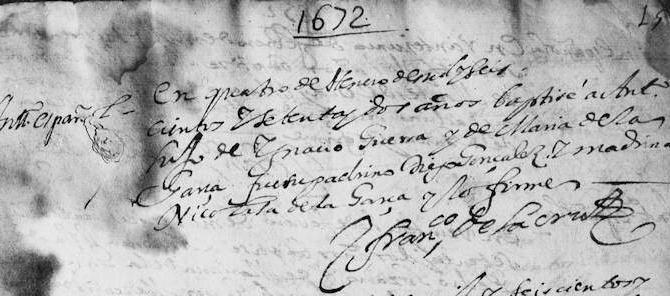 1672
Antt. español
En quatro de Henero de mil y seis
cientos y setenta y dos años baptisé a Antt.
hijo de Ygnacio Guerra y de Maria de la
Garça fue su padrino Diego Gonçalez y madrina
Nicolasa de la Garça y lo firmé
Franco. de la Cruz
y seiscientos y